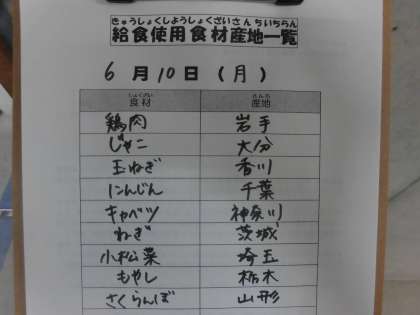 きゅうしょくしようしょくざいさんちいちらん
給食使用食材産地一覧
6月10日(月)
しょくざい さんち
食材 産地
鶏肉 岩手
じゃこ 大分
玉ねぎ 香川
にんじん 千葉
キャベツ 神奈川
ねぎ 茨城
小松菜 埼玉
もやし 栃木
さくらんぼ 山形